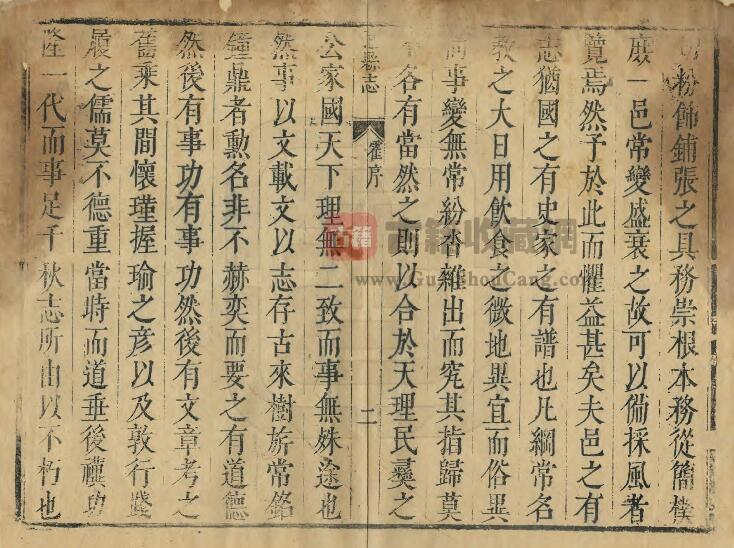 粉飾鋪張之具務崇根本務從簡樸
庶一邑常變盛衰之故可以偹採風者
覽焉然予於此而懼益甚矣夫邑之有
志猶國之有史家之有譜也凡綱常名
教之大日用飲食之微地異宜而俗異
尚事變無常紛沓雜出而究其指歸莫
各有當然之則以合於天理民彞之
縣志
霍序
二
公家國天下理無二致而事無殊途也
然事以文載文以志存古來樹旂常銘
鐘鼎者勲名非不赫奕而要之有道德
然後有事功有事功然後有文章考之
舊乘其間懷瑾握瑜之彦以及敦行踐
履之儒莫不德重當時而道垂後禩功
隆一代而事足千秋志所由以不朽也
古籍
古籍收藏網
www.GuJiShouCang.com